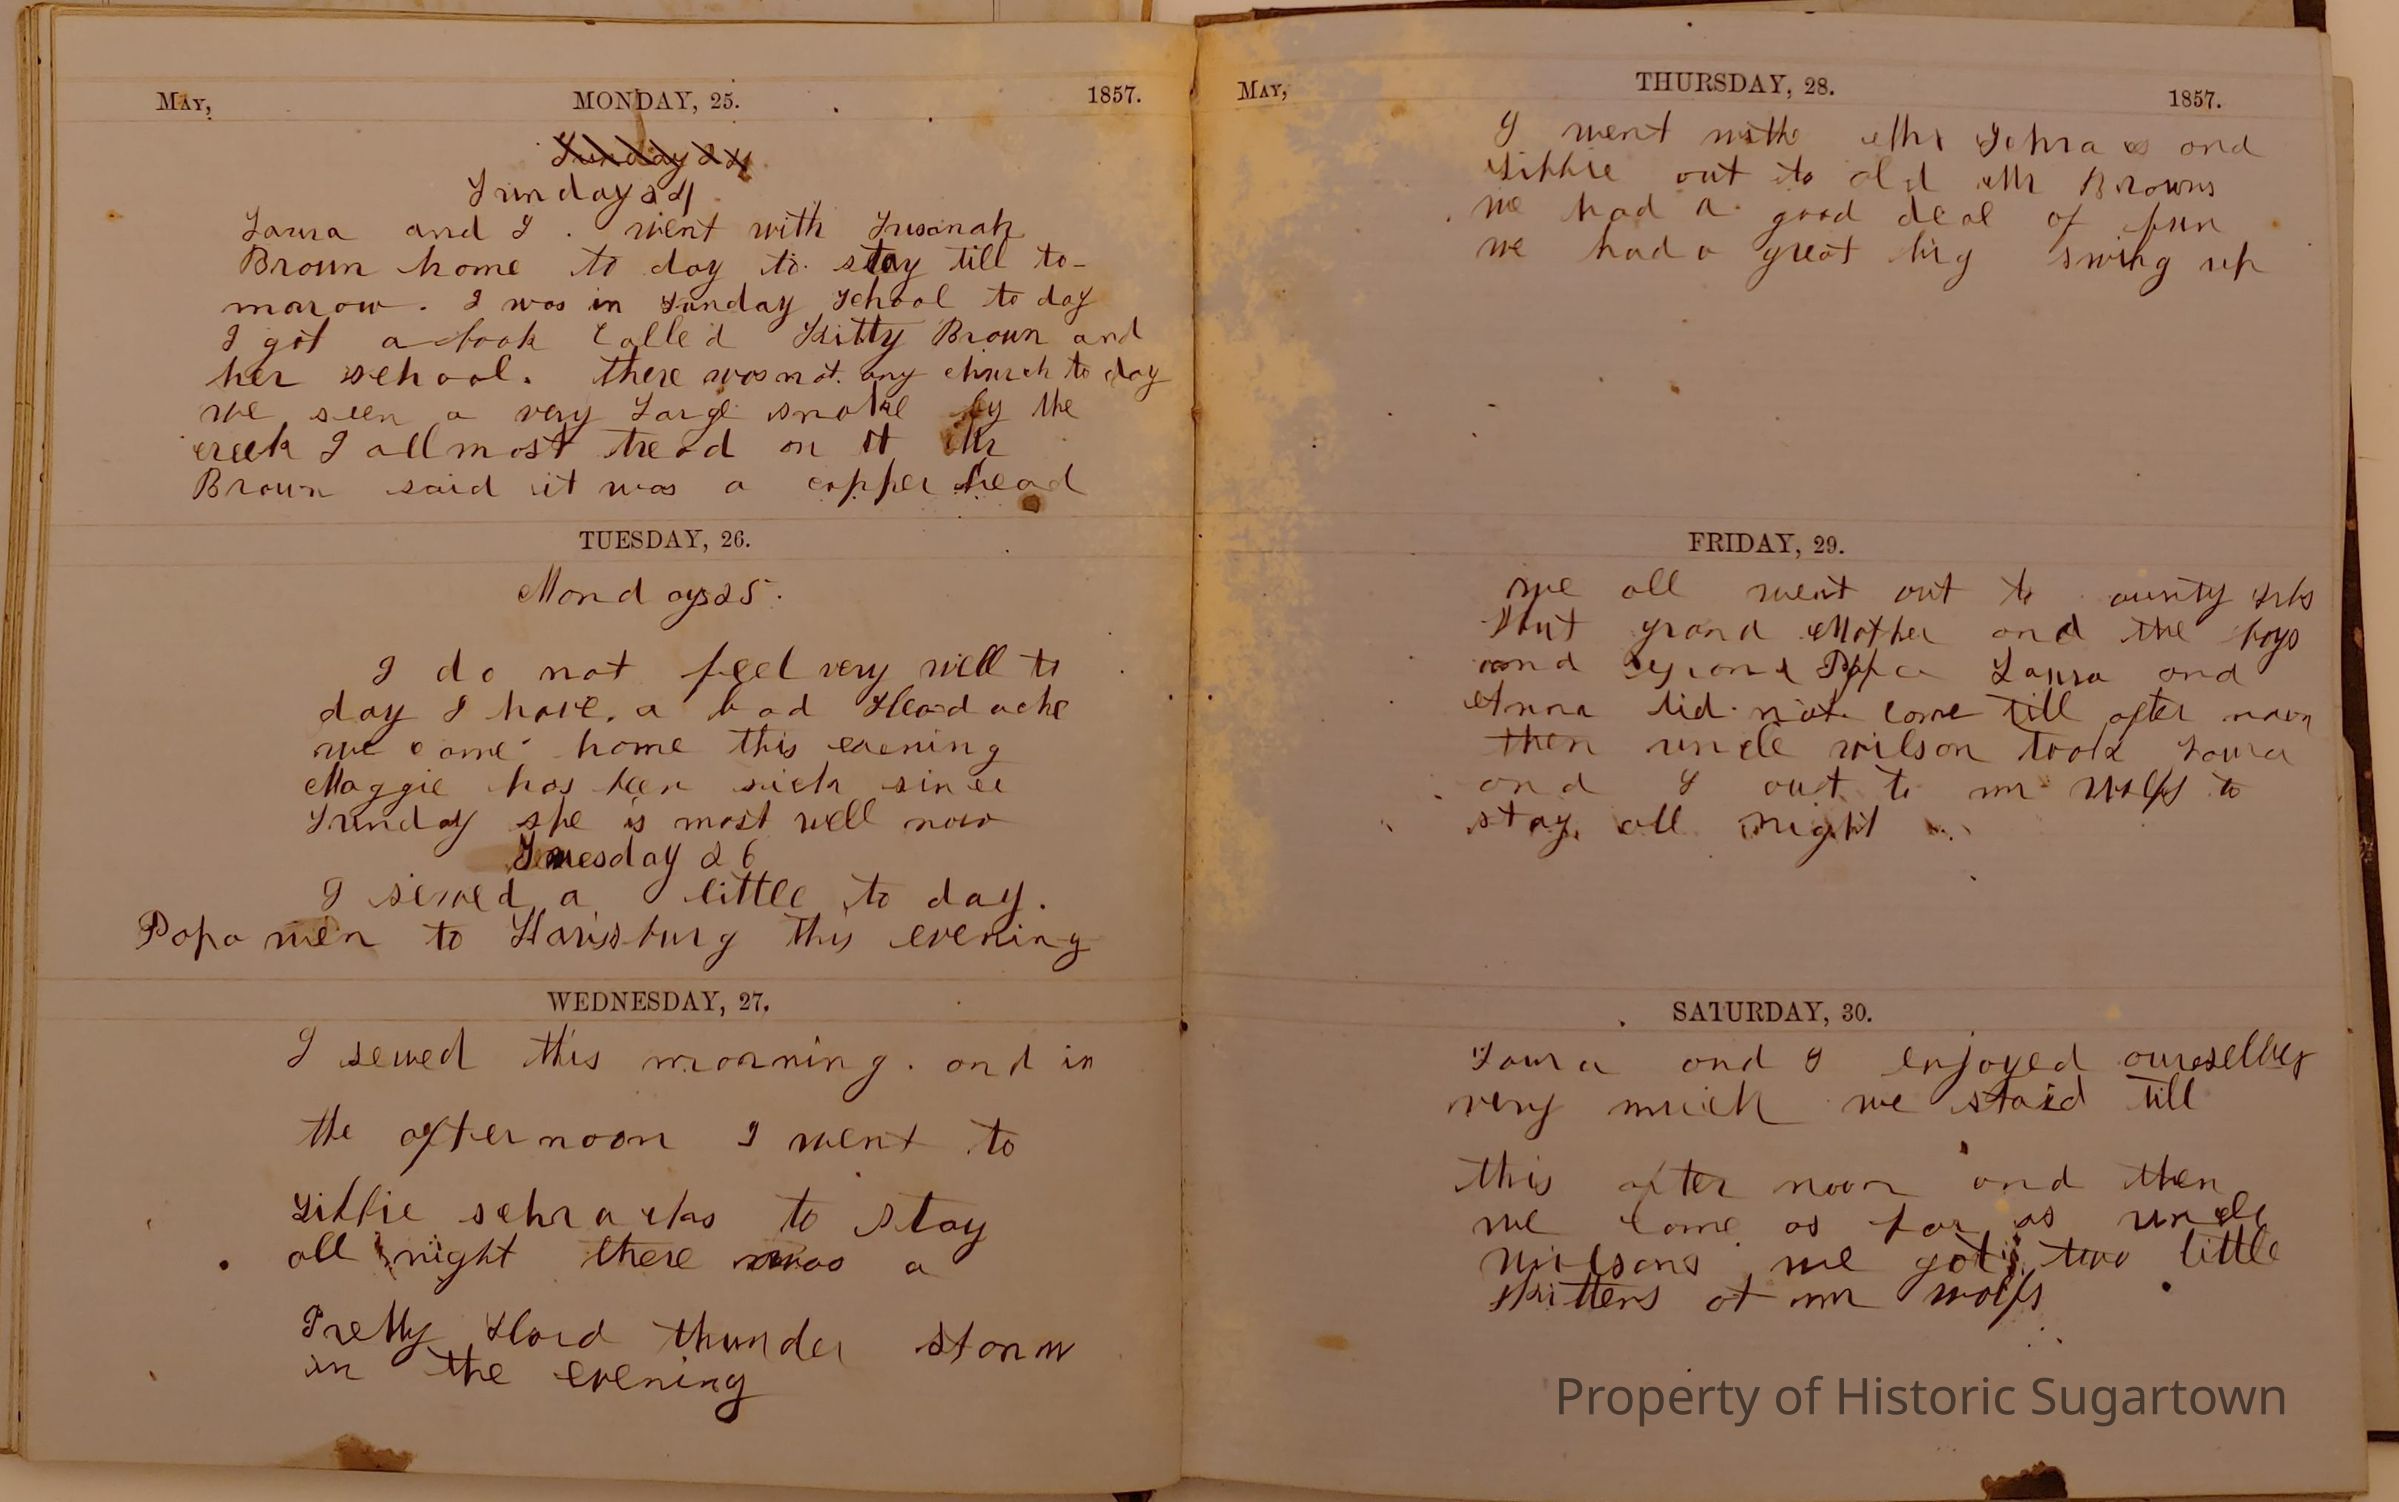 May, MONDAY, 25. 1857.
Sunday 24
Sunday 24
Laura and I went with Susanah
Brown home to day to stay till to-
marow. I was in Sunday School to day
I got a book Called Kitty Brown and
her school. there was not any church to day
we seen a very Large snake by the
creek I allmost tread on it Mr
Brown said it was a copper head
TUESDAY, 26.
Monday 25.
I do not feel very well to
day I have a bad Head ache
we came home this evening
Maggie has been sick since
Sunday she is most well now
Tuesday 26
I sewed a little to day.
Papa wen to Harissburg this evening
WEDNESDAY, 27.
I sewed this morning. and in
the afternoon I went to
Libbie to stay
all night there was a
Pretty Hard thunder storm
in the evening
May, THURSDAY, 28. 1857.
I went with and
Libbie out to old Mr Browns
we had a good deal of fun
we had a great big swing up
FRIDAY, 29.
we all went out to
but grand Mother and the boys
and grand Papa Laura and
Anna did not come till after noon
then uncle wilson took Laura
and I out to mr wolfs to
stay all night
SATURDAY, 30.
Laura and I enjoyed ourselves
very much we staid till
this after noon and then
we came as far as uncle
wilsons we got two little
kittens at mr wolfs
Property of Historic Sugartown